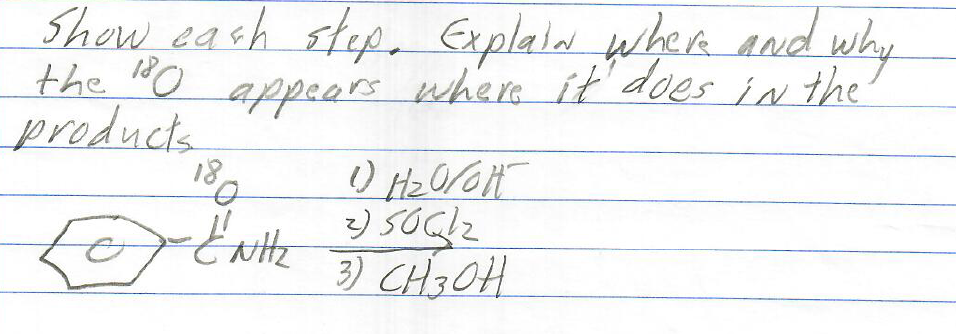 Show each step. Explain where and why
the ¹⁸O appears where it does in the
products
¹⁸O
C NH₂
1) H₂O/OH⁻
2) SOCl₂
3) CH₃OH